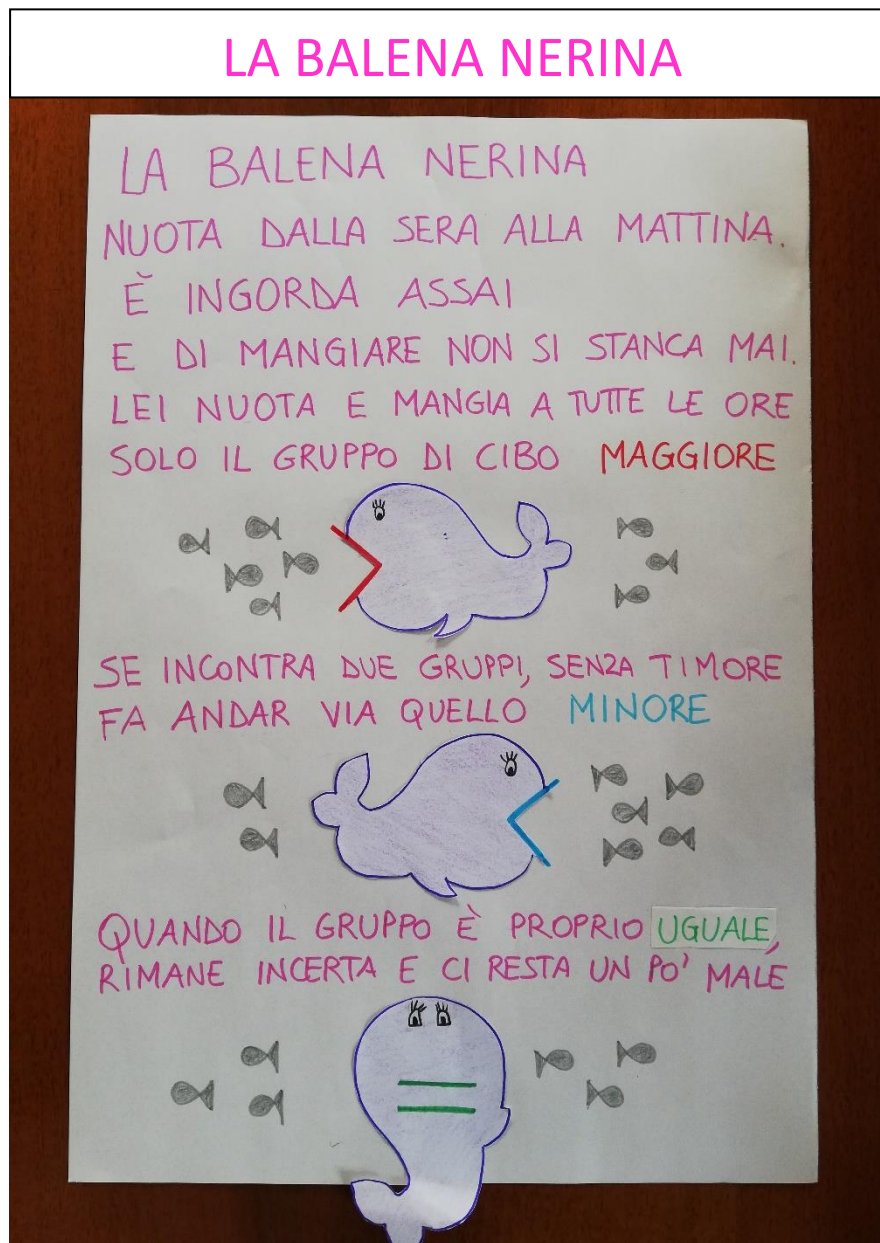 LA BALENA NERINA
LA BALENA NERINA
NUOTA DALLA SERA ALLA MATTINA.
È INGORDA ASSAI
E DI MANGIARE NON SI STANCA MAI.
LEI NUOTA E MANGIA A TUTTE LE ORE
SOLO IL GRUPPO DI CIBO MAGGIORE
SE INCONTRA DUE GRUPPI, SENZA TIMORE
FA ANDAR VIA QUELLO MINORE
QUANDO IL GRUPPO È PROPRIO UGUALE,
RIMANE INCERTA E CI RESTA UN PO' MALE
=